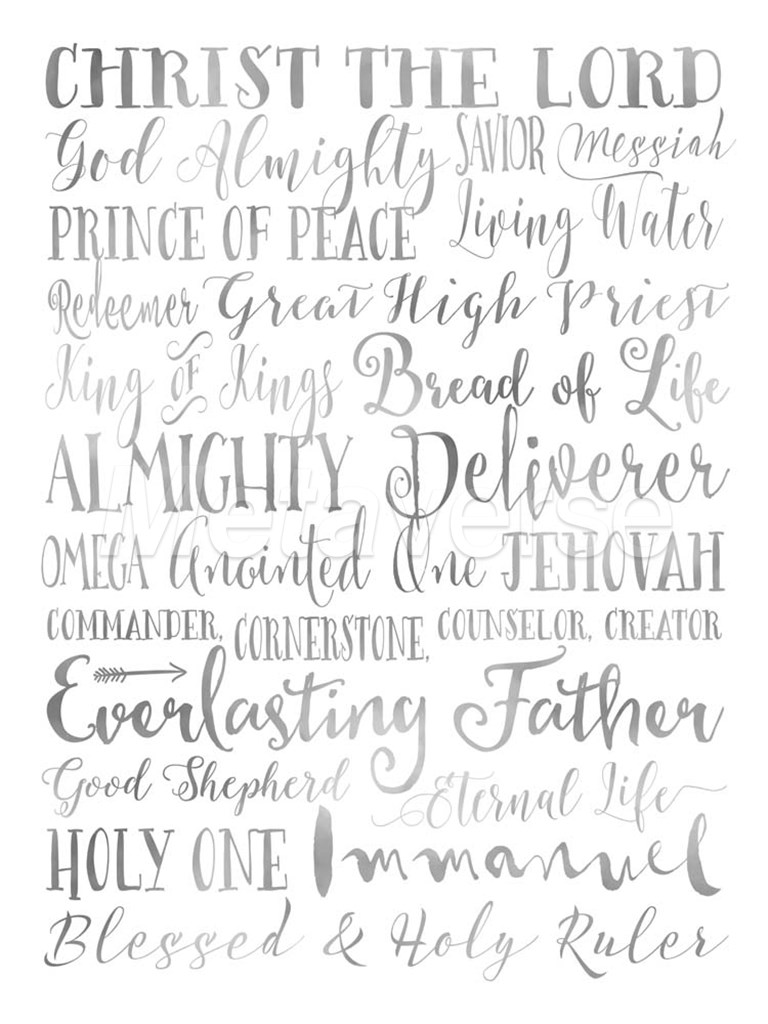 CHRIST THE LORD
God Almighty SAVIOR Messiah
PRINCE OF PEACE Living Water
Redeemer Great High Priest
King OF Kings Bread of Life
ALMIGHTY Deliverer
Metaverse
OMEGA Anointed One JEHOVAH
COMMANDER, CORNERSTONE, COUNSELOR, CREATOR
Everlasting Father
Good Shepherd Eternal Life
HOLY ONE Immanuel
Blessed & Holy Ruler